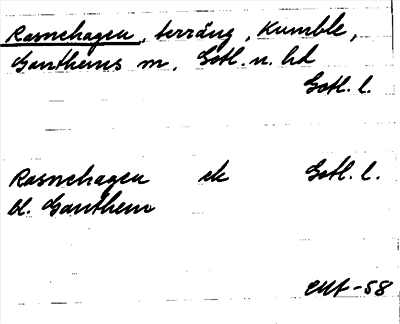 Rasmehagen, terräng, Kumble,
Ganthems sn, Gotl. n. hd
Gotl. l.
Rasmehagen ek Gotl. l.
bl. Ganthem
-58